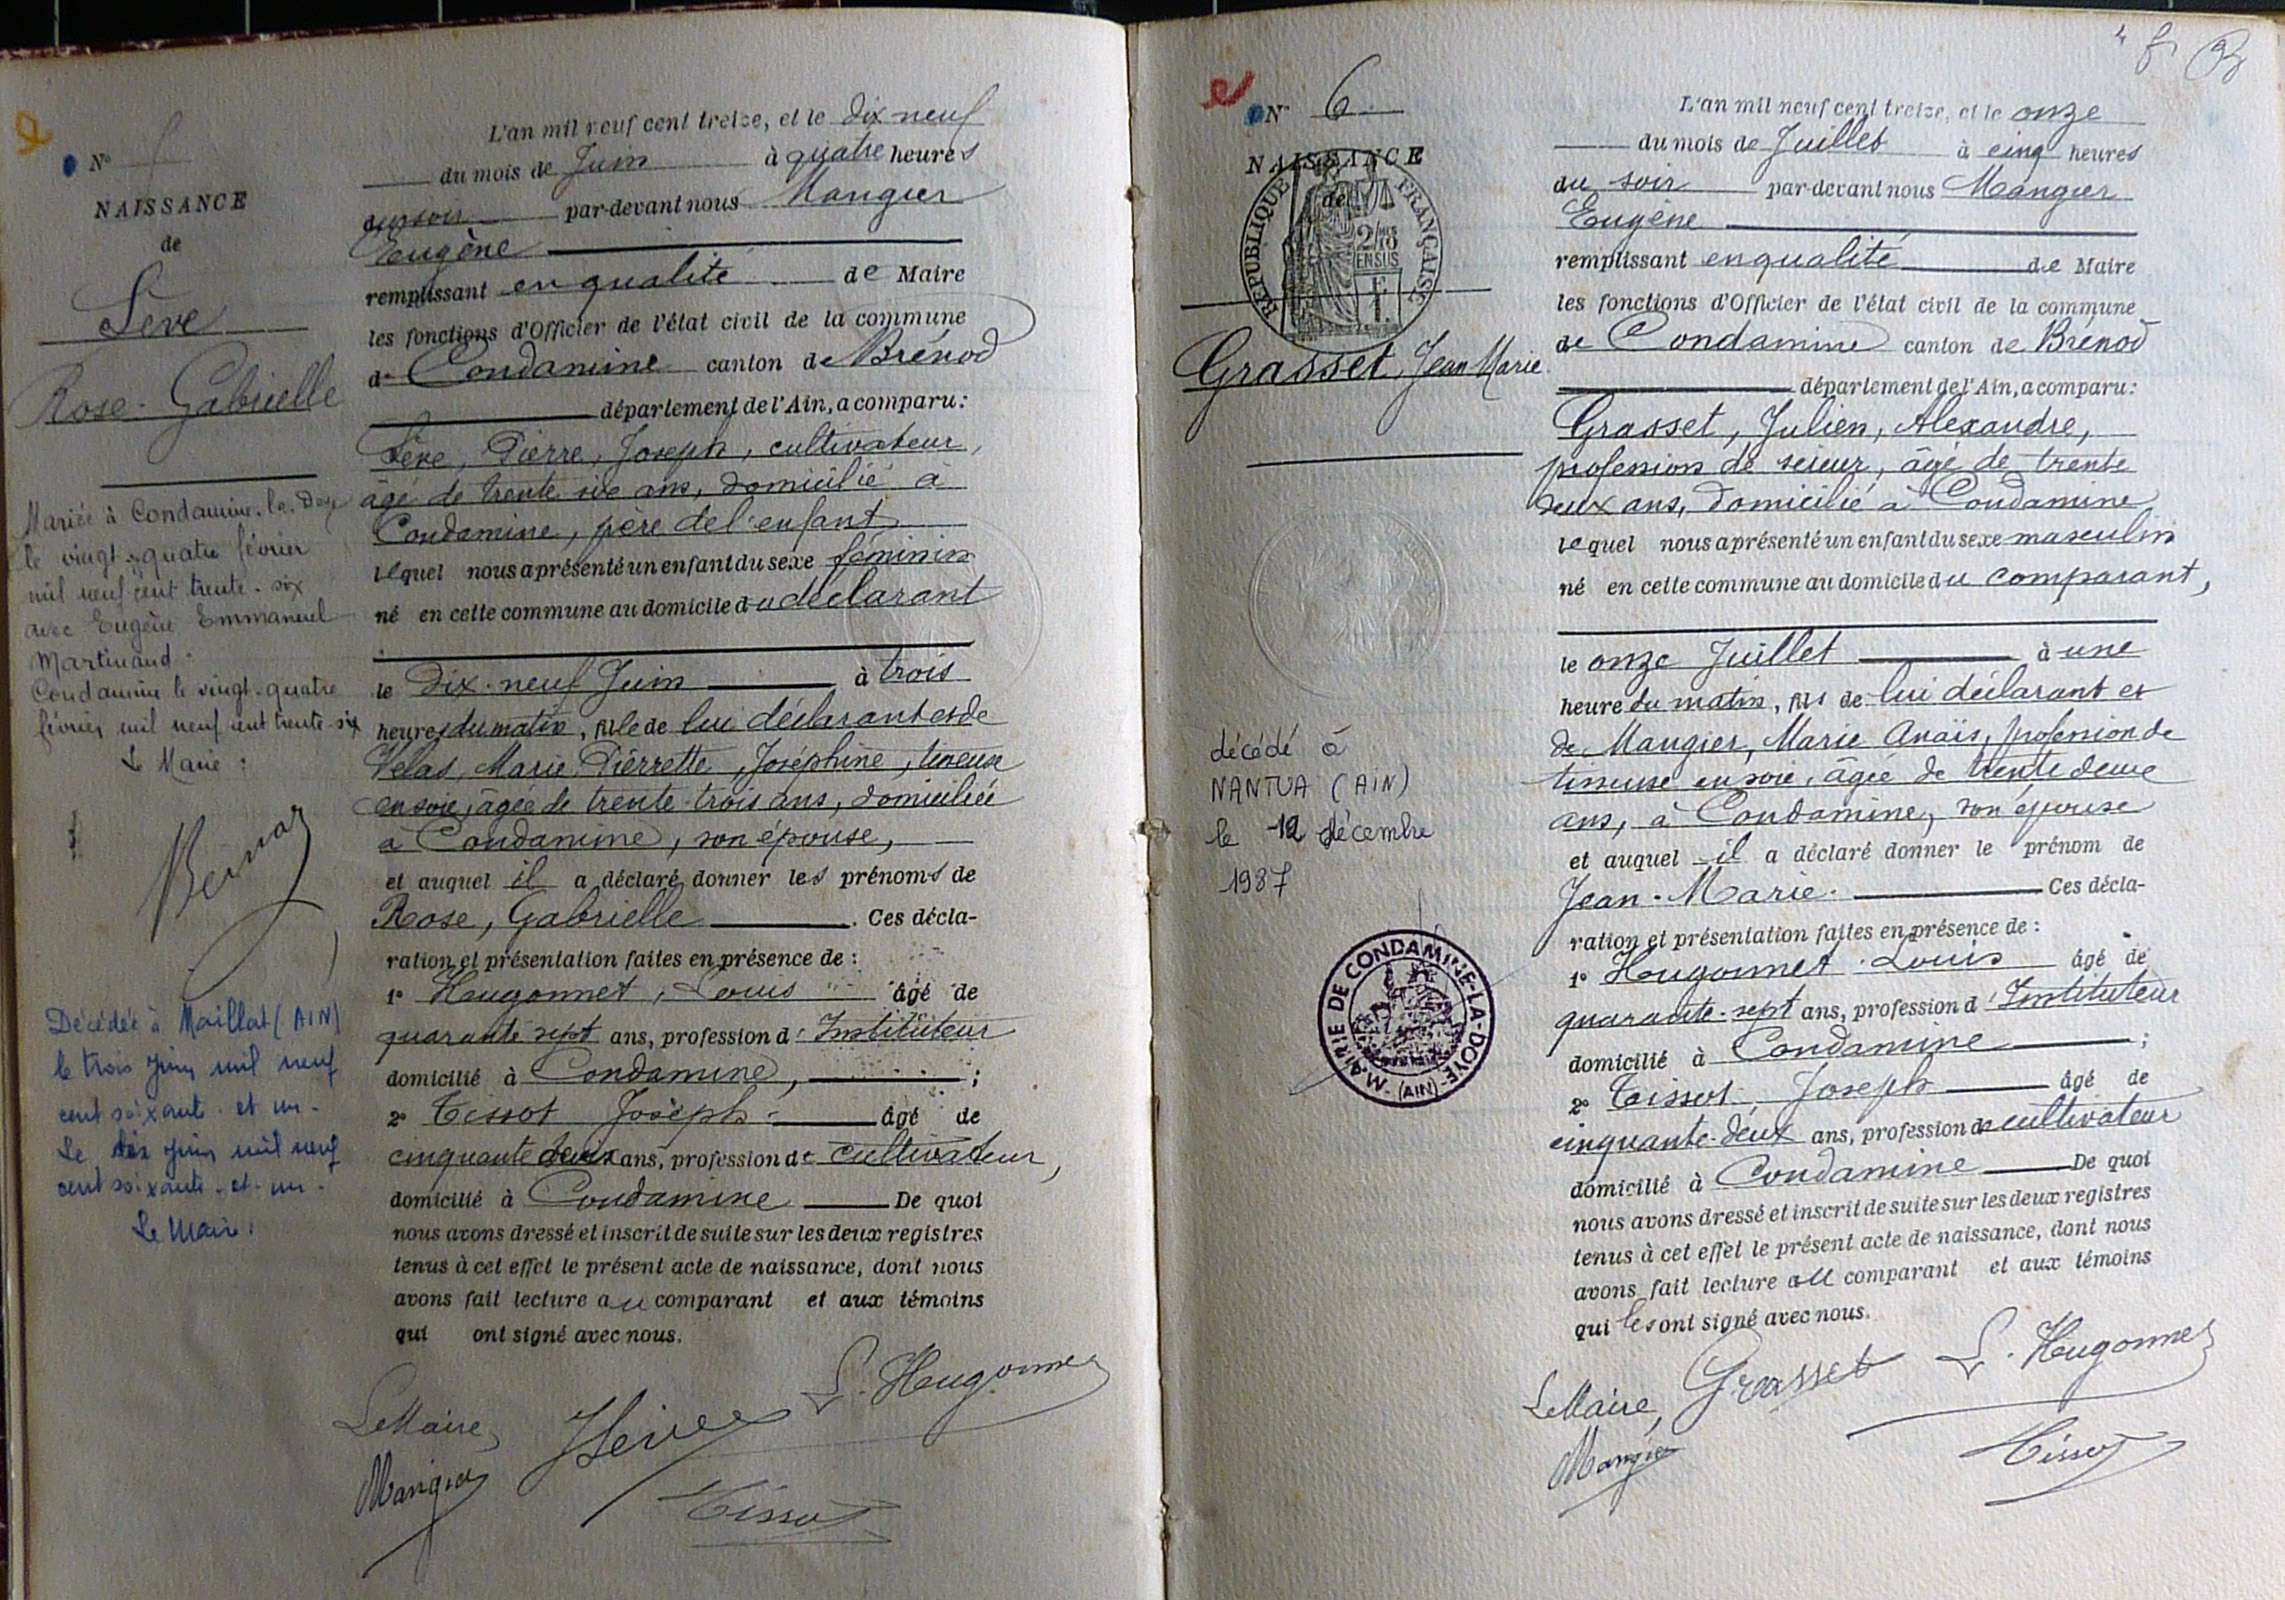 N°
NAISSANCE
de
Sève
Rose Gabrielle
Mariée à Condamine-la-Doye
le vingt-quatre février
mil neuf cent trente-six
avec Eugène Emmanuel
Martinand.
Condamine le vingt-quatre
février mil neuf cent trente-six
Le Maire :
Décédée à Maillat (AIN)
le trois juin mil neuf
cent soixante-et-un.
Le dix juin mil neuf
cent soixante-et-un.
Le Maire :
L'an mil neuf cent treize, et le dix neuf
du mois de Juin à quatre heures
du soir par-devant nous Mangier
Eugène
remplissant en qualité de Maire
les fonctions d'Officier de l'état civil de la commune
de Condamine canton de Brénod
département de l'Ain, a comparu :
Sève, Pierre, Joseph, cultivateur,
âgé de trente six ans, domicilié à
Condamine, père de l'enfant
lequel nous a présenté un enfant du sexe féminin
né en cette commune au domicile du déclarant
le dix-neuf Juin à trois
heures du matin, fille de lui déclarant et de
Velas, Marie Pierrette, Joséphine, tisseuse
en soie, âgée de trente-trois ans, domiciliée
à Condamine, son épouse,
et auquel il a déclaré donner les prénoms de
Rose, Gabrielle. Ces décla-
ration et présentation faites en présence de :
1° Hugonnet, Louis âgé de
quarante sept ans, profession d'Instituteur
domicilié à Condamine, ;
2° Tissot Joseph âgé de
cinquante deux ans, profession de cultivateur,
domicilié à Condamine De quoi
nous avons dressé et inscrit de suite sur les deux registres
tenus à cet effet le présent acte de naissance, dont nous
avons fait lecture au comparant et aux témoins
qui ont signé avec nous.
Le Maire, JSève L. Hugonnet
Mangier Tissot
N° 6
NAISSANCE
de
REPUBLIQUE FRANÇAISE
2/10
EN SUS
1 F.
Grasset, Jean Marie.
décédé à
NANTUA (AIN)
le 12 décembre
1987
MAIRIE DE CONDAMINE-LA-DOYE
(AIN)
L'an mil neuf cent treize, et le onze
du mois de Juillet à cinq heures
du soir par-devant nous Mangier
Eugène
remplissant en qualité de Maire
les fonctions d'Officier de l'état civil de la commune
de Condamine canton de Brénod
département de l'Ain, a comparu :
Grasset, Julien, Alexandre,
profession de scieur, âgé de trente
deux ans, domicilié à Condamine
lequel nous a présenté un enfant du sexe masculin
né en cette commune au domicile du comparant,
le onze Juillet à une
heure du matin, fils de lui déclarant et
de Mangier, Marie Anaïs, profession de
tisseuse en soie, âgée de trente deux
ans, à Condamine, son épouse
et auquel il a déclaré donner le prénom de
Jean-Marie. Ces décla-
ration et présentation faites en présence de :
1° Hugonnet Louis âgé de
quarante-sept ans, profession d'Instituteur
domicilié à Condamine ;
2° Tissot Joseph âgé de
cinquante-deux ans, profession de cultivateur
domicilié à Condamine De quoi
nous avons dressé et inscrit de suite sur les deux registres
tenus à cet effet le présent acte de naissance, dont nous
avons fait lecture au comparant et aux témoins
qui les ont signé avec nous.
Le Maire, Grasset L. Hugonnet
Mangier Tissot